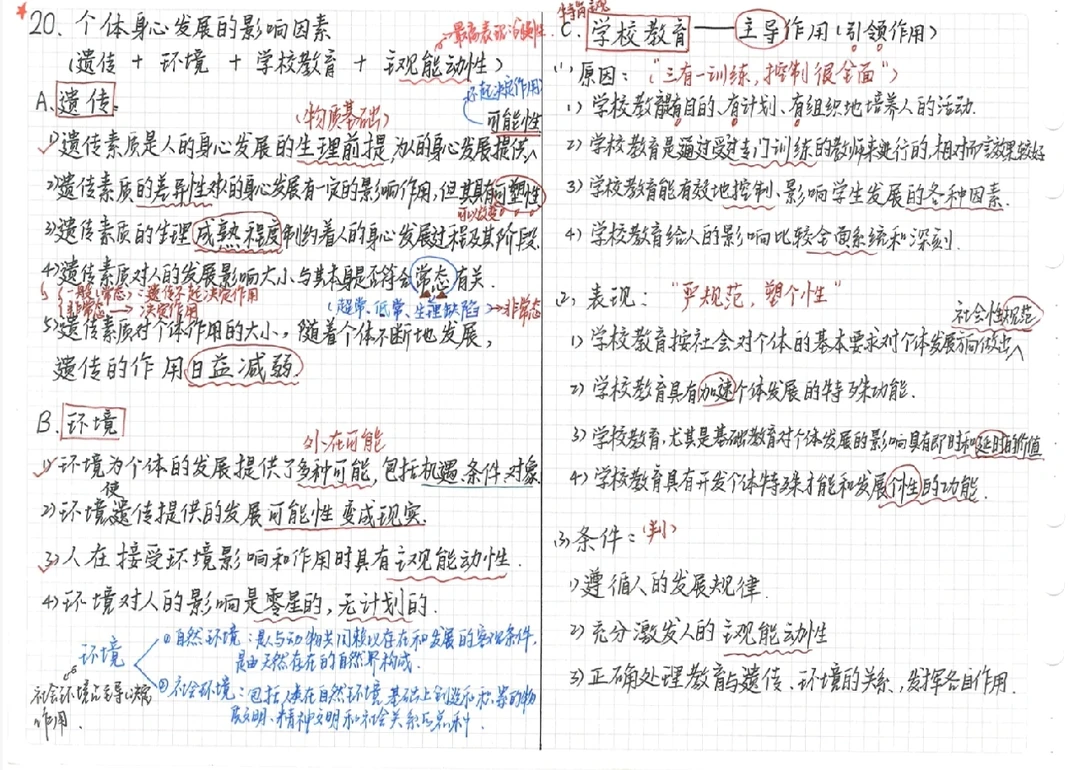 20、个体身心发展的影响因素
最高表现:创造性
(遗传 + 环境 + 学校教育 + 主观能动性)
A. 遗传:
(物质基础)
还起决定作用
可能性
1)遗传素质是人的身心发展的生理前提,为人的身心发展提供∧
2)遗传素质的差异性对人的身心发展有一定的影响作用,但其具有可塑性
可以改变
3)遗传素质的生理成熟程度制约着人的身心发展过程及其阶段.
4)遗传素质对人的发展影响大小与其本身是否符合常态有关.
一般(常态):遗传不起决定作用
非常态→决定作用
(超常、低常、生理缺陷)→非常态
5)遗传素质对个体作用的大小,随着个体不断地发展,
遗传的作用日益减弱
B. 环境
外在可能
1)环境为个体的发展提供了多种可能,包括机遇、条件、对象
2)环境使遗传提供的发展可能性变成现实.
3)人在接受环境影响和作用时具有主观能动性.
4)环境对人的影响是零星的,无计划的.
环境
①自然环境:是人与动物共同赖以存在和发展的客观条件,
是由天然存在的自然界构成.
②社会环境:包括人类在自然环境基础上创造和积累的物
质文明、精神文明和社会关系的总和.
社会环境起主导
作用.
C. 学校教育——主导作用(引领作用)
(1) 原因:("三有一训练,控制很全面")
1) 学校教育是有目的、有计划、有组织地培养人的活动.
2) 学校教育是通过受过专门训练的教师来进行的,相对而言效果较好
3) 学校教育能有效地控制、影响学生发展的各种因素.
4) 学校教育给人的影响比较全面系统和深刻.
(2) 表现:"严规范,塑个性"
社会性规范
1) 学校教育按社会对个体的基本要求对个体发展方向做出∧
2) 学校教育具有加速个体发展的特殊功能.
3) 学校教育,尤其是基础教育对个体发展的影响具有即时和延时的价值
4) 学校教育具有开发个体特殊才能和发展个性的功能.
(3) 条件:(判)
1) 遵循人的发展规律.
2) 充分激发人的主观能动性
3) 正确处理教育与遗传、环境的关系,发挥各自作用.